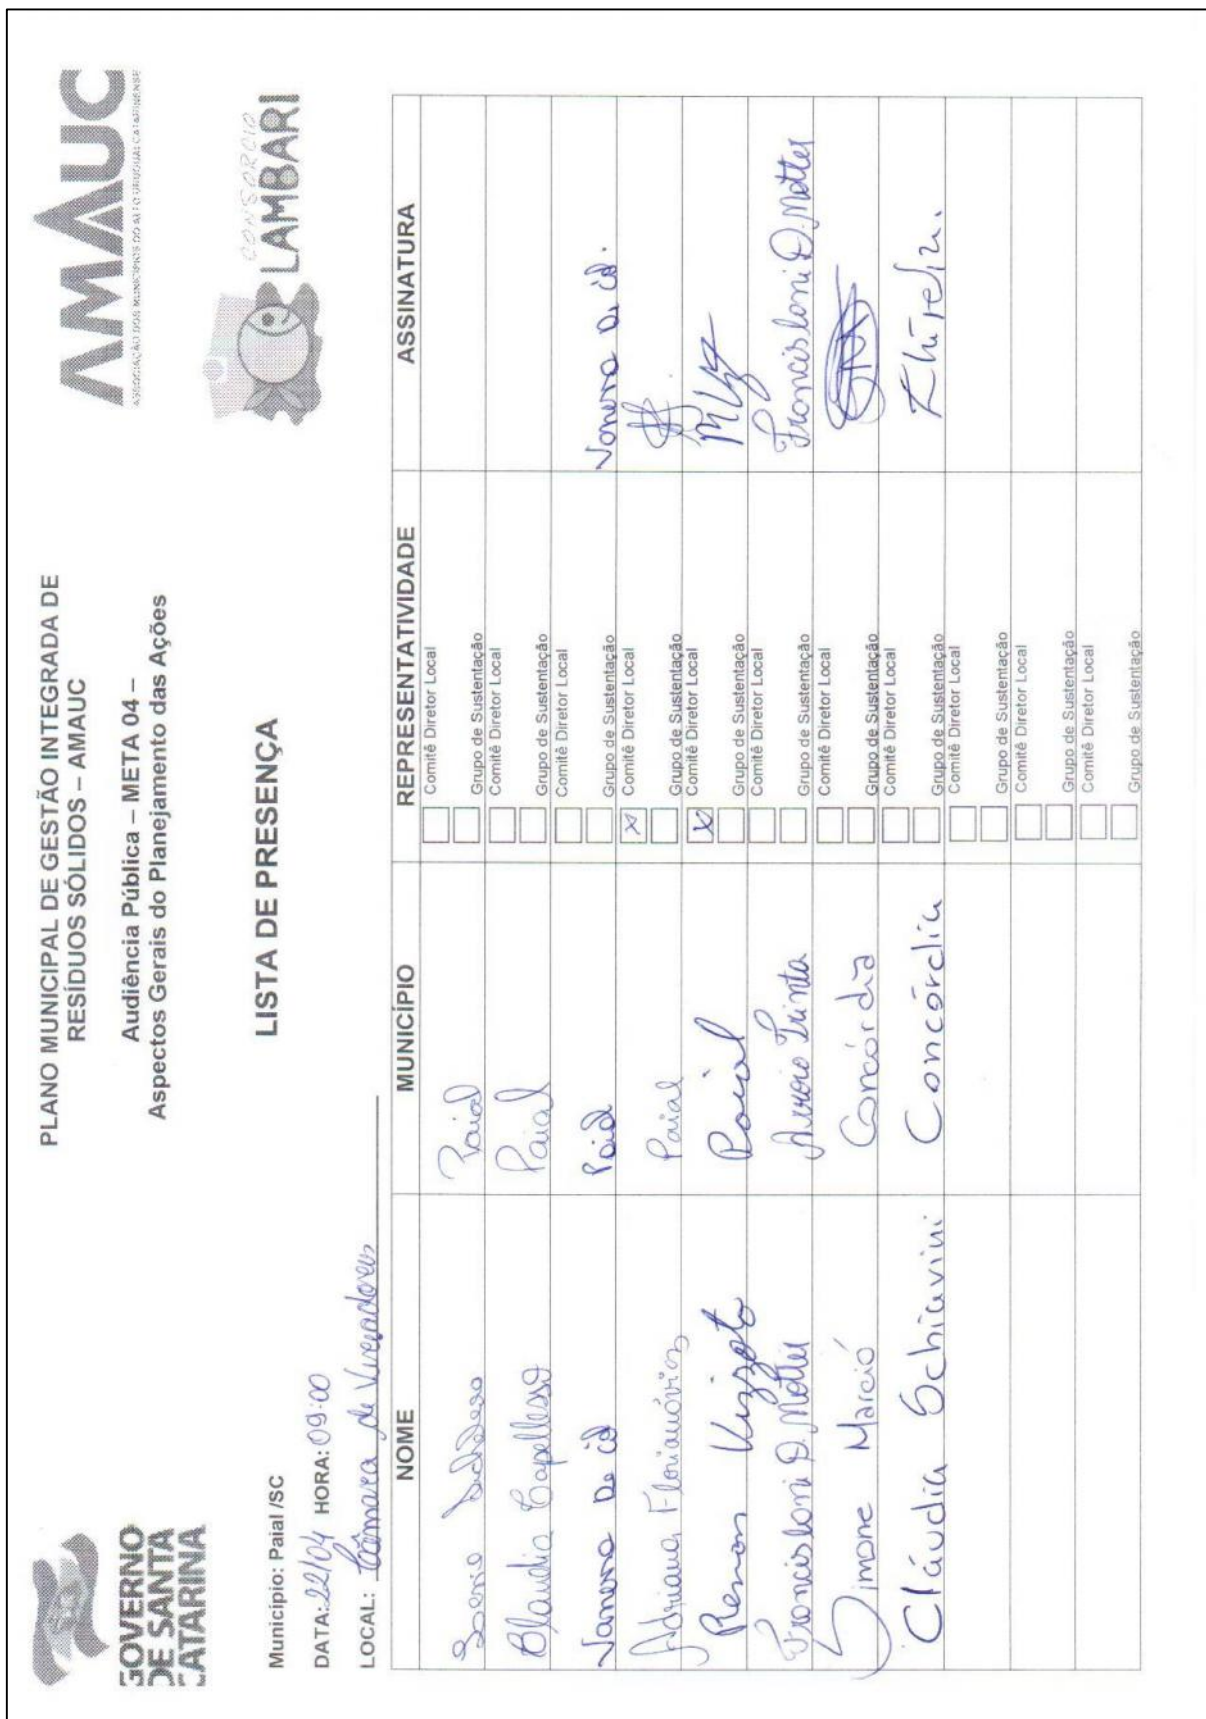 GOVERNO
DE SANTA
CATARINA
PLANO MUNICIPAL DE GESTÃO INTEGRADA DE
RESÍDUOS SÓLIDOS – AMAUC
Audiência Pública – META 04 –
Aspectos Gerais do Planejamento das Ações
AMAUC
ASSOCIAÇÃO DOS MUNICÍPIOS DO ALTO URUGUAI CATARINENSE
CONSORCIO
LAMBARI
LISTA DE PRESENÇA
Município: Paial /SC
DATA: 22/04 HORA: 09:00
LOCAL: Câmara de Vereadores
NOME MUNICÍPIO REPRESENTATIVIDADE ASSINATURA
Paial Comitê Diretor Local
Grupo de Sustentação
Claudia Capellesso Paial Comitê Diretor Local
Grupo de Sustentação
Paial Comitê Diretor Local
Grupo de Sustentação
Adriana Paial x Comitê Diretor Local
Grupo de Sustentação
Renan Paial x Comitê Diretor Local
Grupo de Sustentação
Francisloni D. Motter Arroio Trinta Comitê Diretor Local Francisloni D. Motter
Grupo de Sustentação
Simone Marció Concórdia Comitê Diretor Local
Grupo de Sustentação
Cláudia Schiavini Concórdia Comitê Diretor Local
Grupo de Sustentação
Comitê Diretor Local
Grupo de Sustentação
Comitê Diretor Local
Grupo de Sustentação
Comitê Diretor Local
Grupo de Sustentação